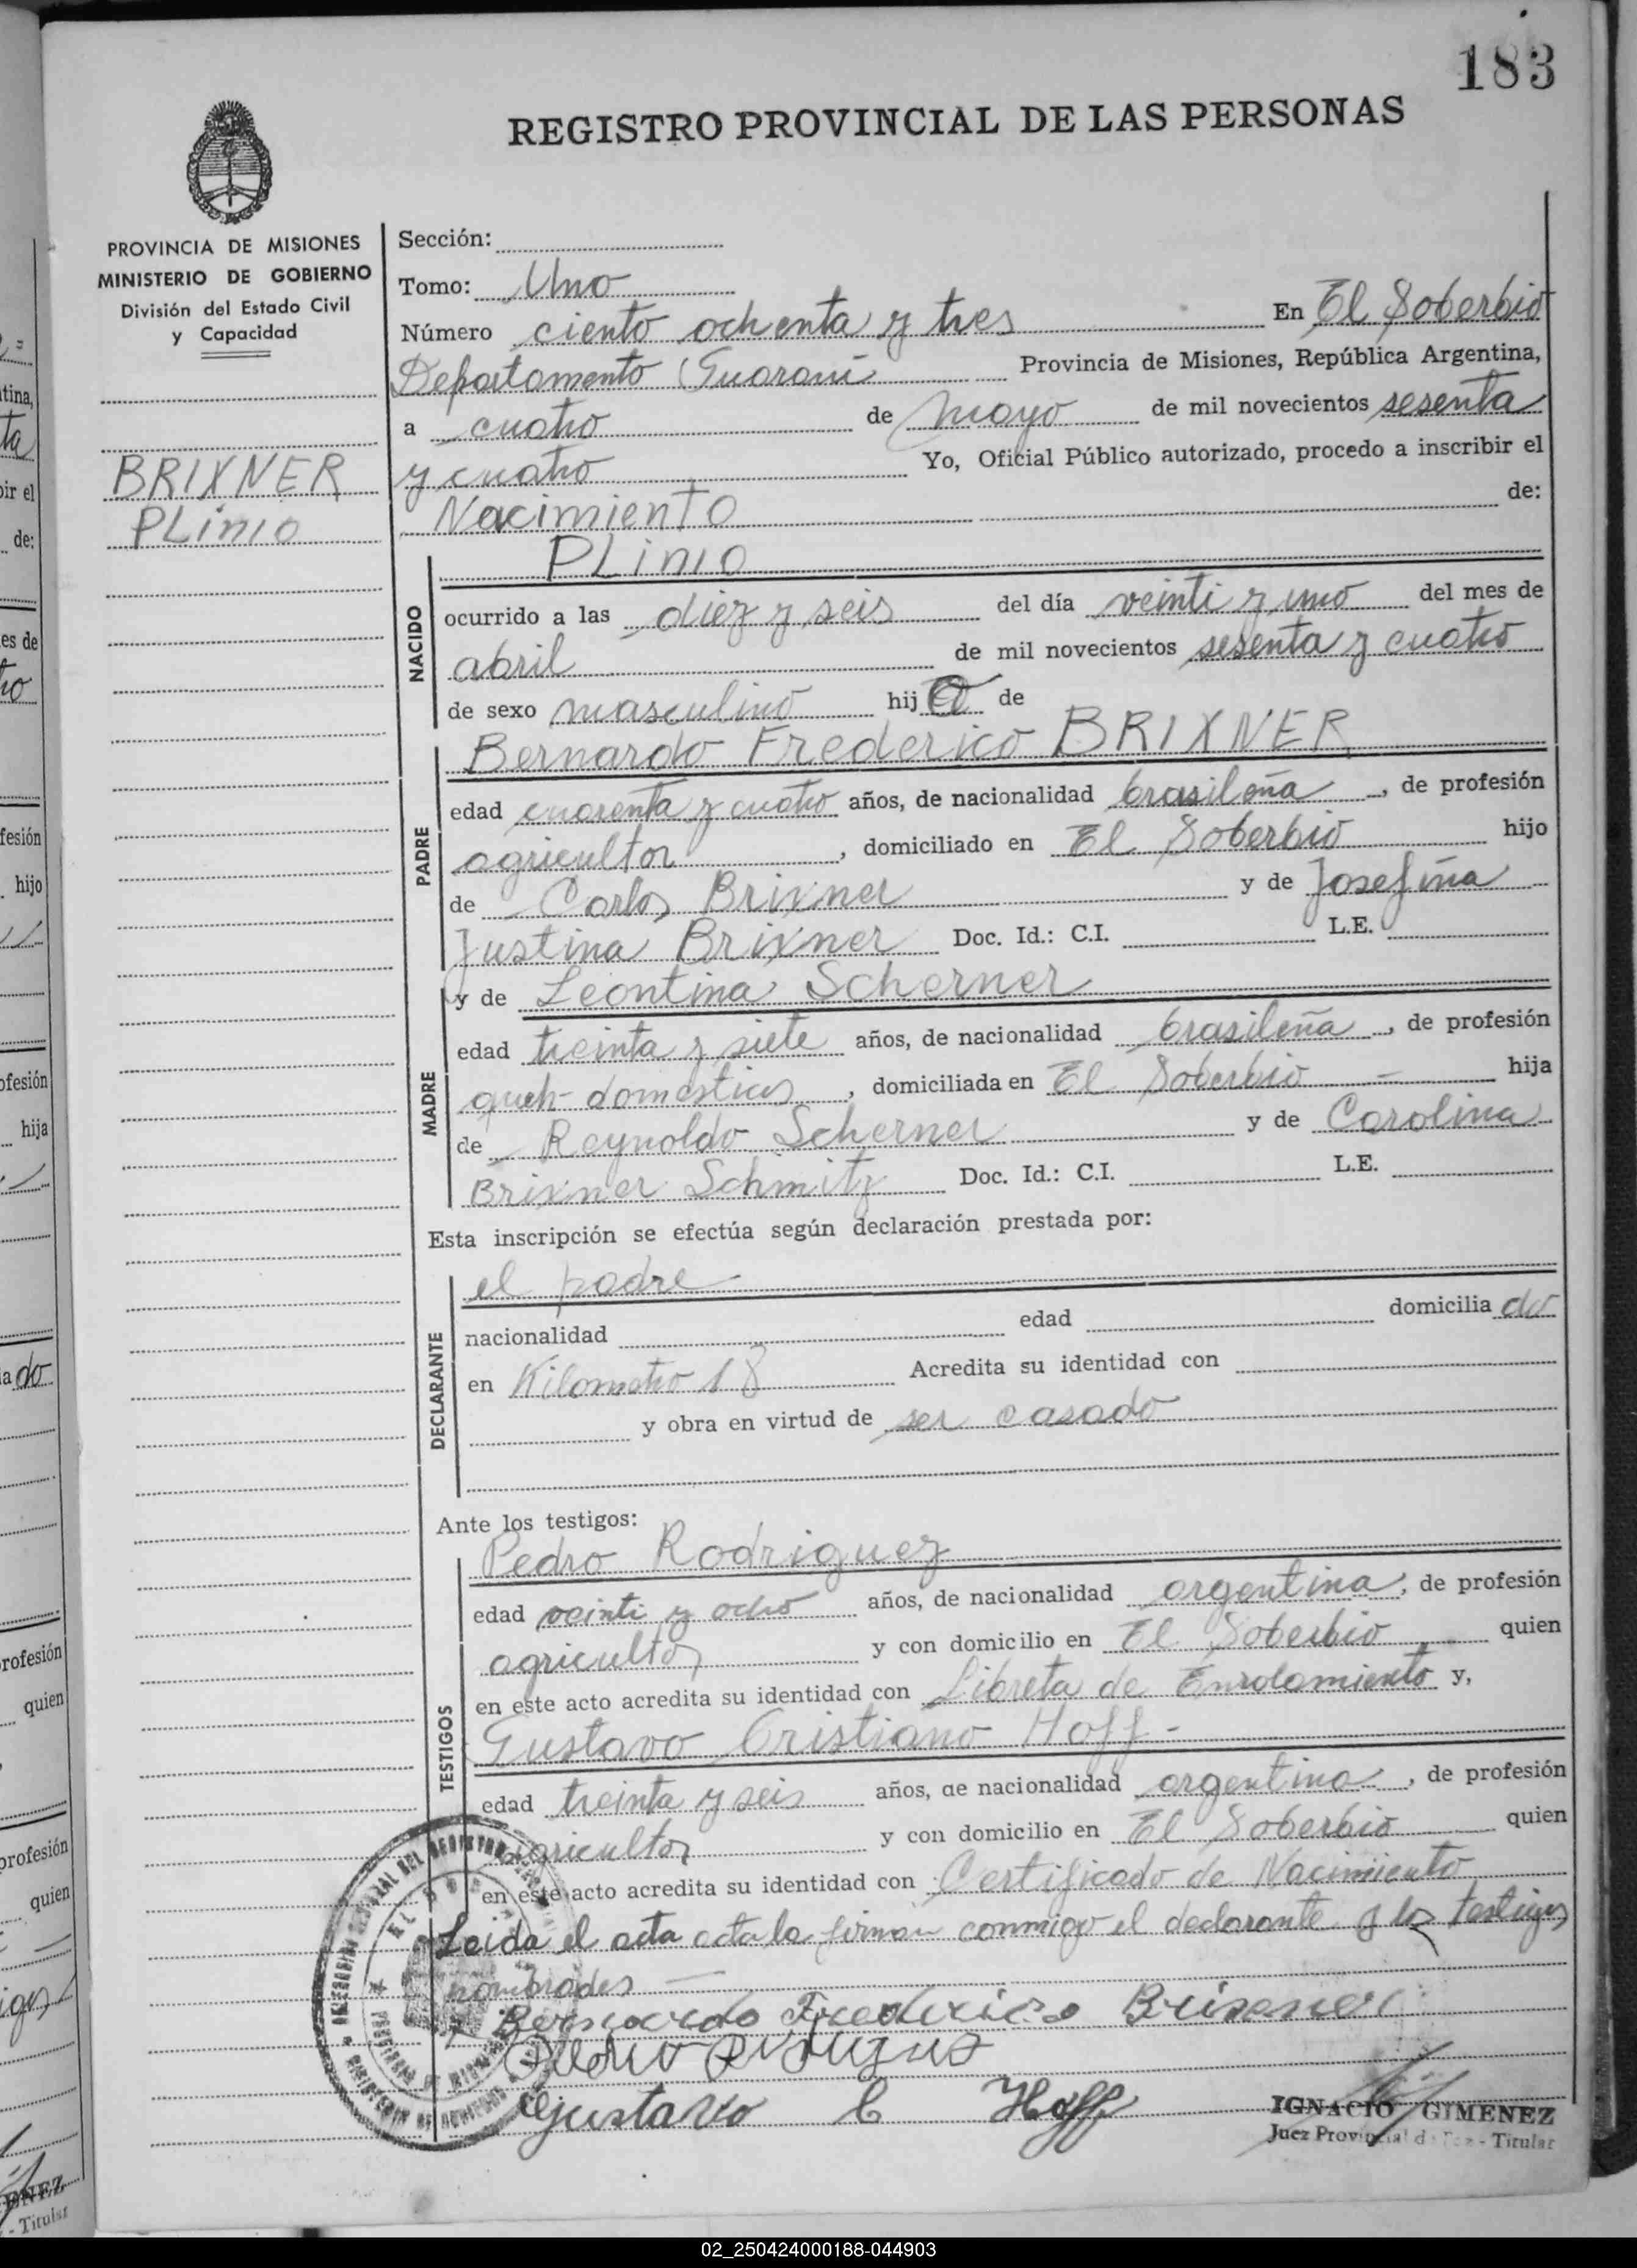 183
REGISTRO PROVINCIAL DE LAS PERSONAS
PROVINCIA DE MISIONES
MINISTERIO DE GOBIERNO
División del Estado Civil
y Capacidad
BRIXNER
PLinio
Sección:
Tomo: Uno
Número ciento ochenta y tres En El Soberbio
Departamento Guaraní Provincia de Misiones, República Argentina,
a cuatro de mayo de mil novecientos sesenta
y cuatro Yo, Oficial Público autorizado, procedo a inscribir el
Nacimiento de:
PLinio
NACIDO
ocurrido a las diez y seis del día veinti y uno del mes de
abril de mil novecientos sesenta y cuatro
de sexo masculino hijo de
Bernardo Frederico BRIXNER
PADRE
edad cuarenta y cuatro años, de nacionalidad brasileña, de profesión
agricultor, domiciliado en El Soberbio hijo
de Carlos Brixner y de Josefina
Justina Brixner Doc. Id.: C.I. L.E.
y de Leontina Scherner
MADRE
edad treinta y siete años, de nacionalidad brasileña, de profesión
queh-domesticos, domiciliada en El Soberbio - hija
de Reynoldo Scherner y de Carolina
Brixner Schmitz Doc. Id.: C.I. L.E.
Esta inscripción se efectúa según declaración prestada por:
el padre
DECLARANTE
nacionalidad edad domicilia do
en Kilometro 18 Acredita su identidad con
y obra en virtud de ser casado
Ante los testigos:
Pedro Rodriguez
TESTIGOS
edad veinti y ocho años, de nacionalidad argentina, de profesión
agricultor y con domicilio en El Soberbio quien
en este acto acredita su identidad con Libreta de Enrolamiento y,
Gustavo Cristiano Hoff -
edad treinta y seis años, de nacionalidad argentina, de profesión
agricultor y con domicilio en El Soberbio quien
en este acto acredita su identidad con Certificado de Nacimiento
Leida el acta acta la firman conmigo el declarante y los testigos
nombrados —
Bernardo Frederico Brixner
Gustavo C Hoff
IGNACIO GIMENEZ
Juez Provincial de Paz - Titular
02_250424000188-044903